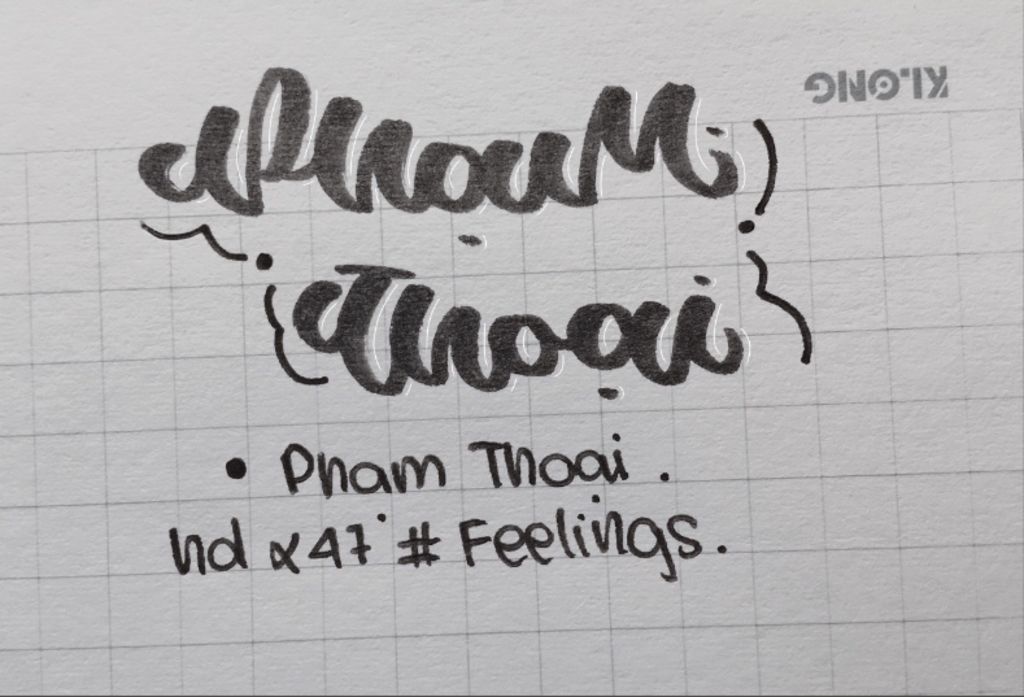 KLONG
Phạm
Thoại
• Pham Thoai .
nd x47 # Feelings.